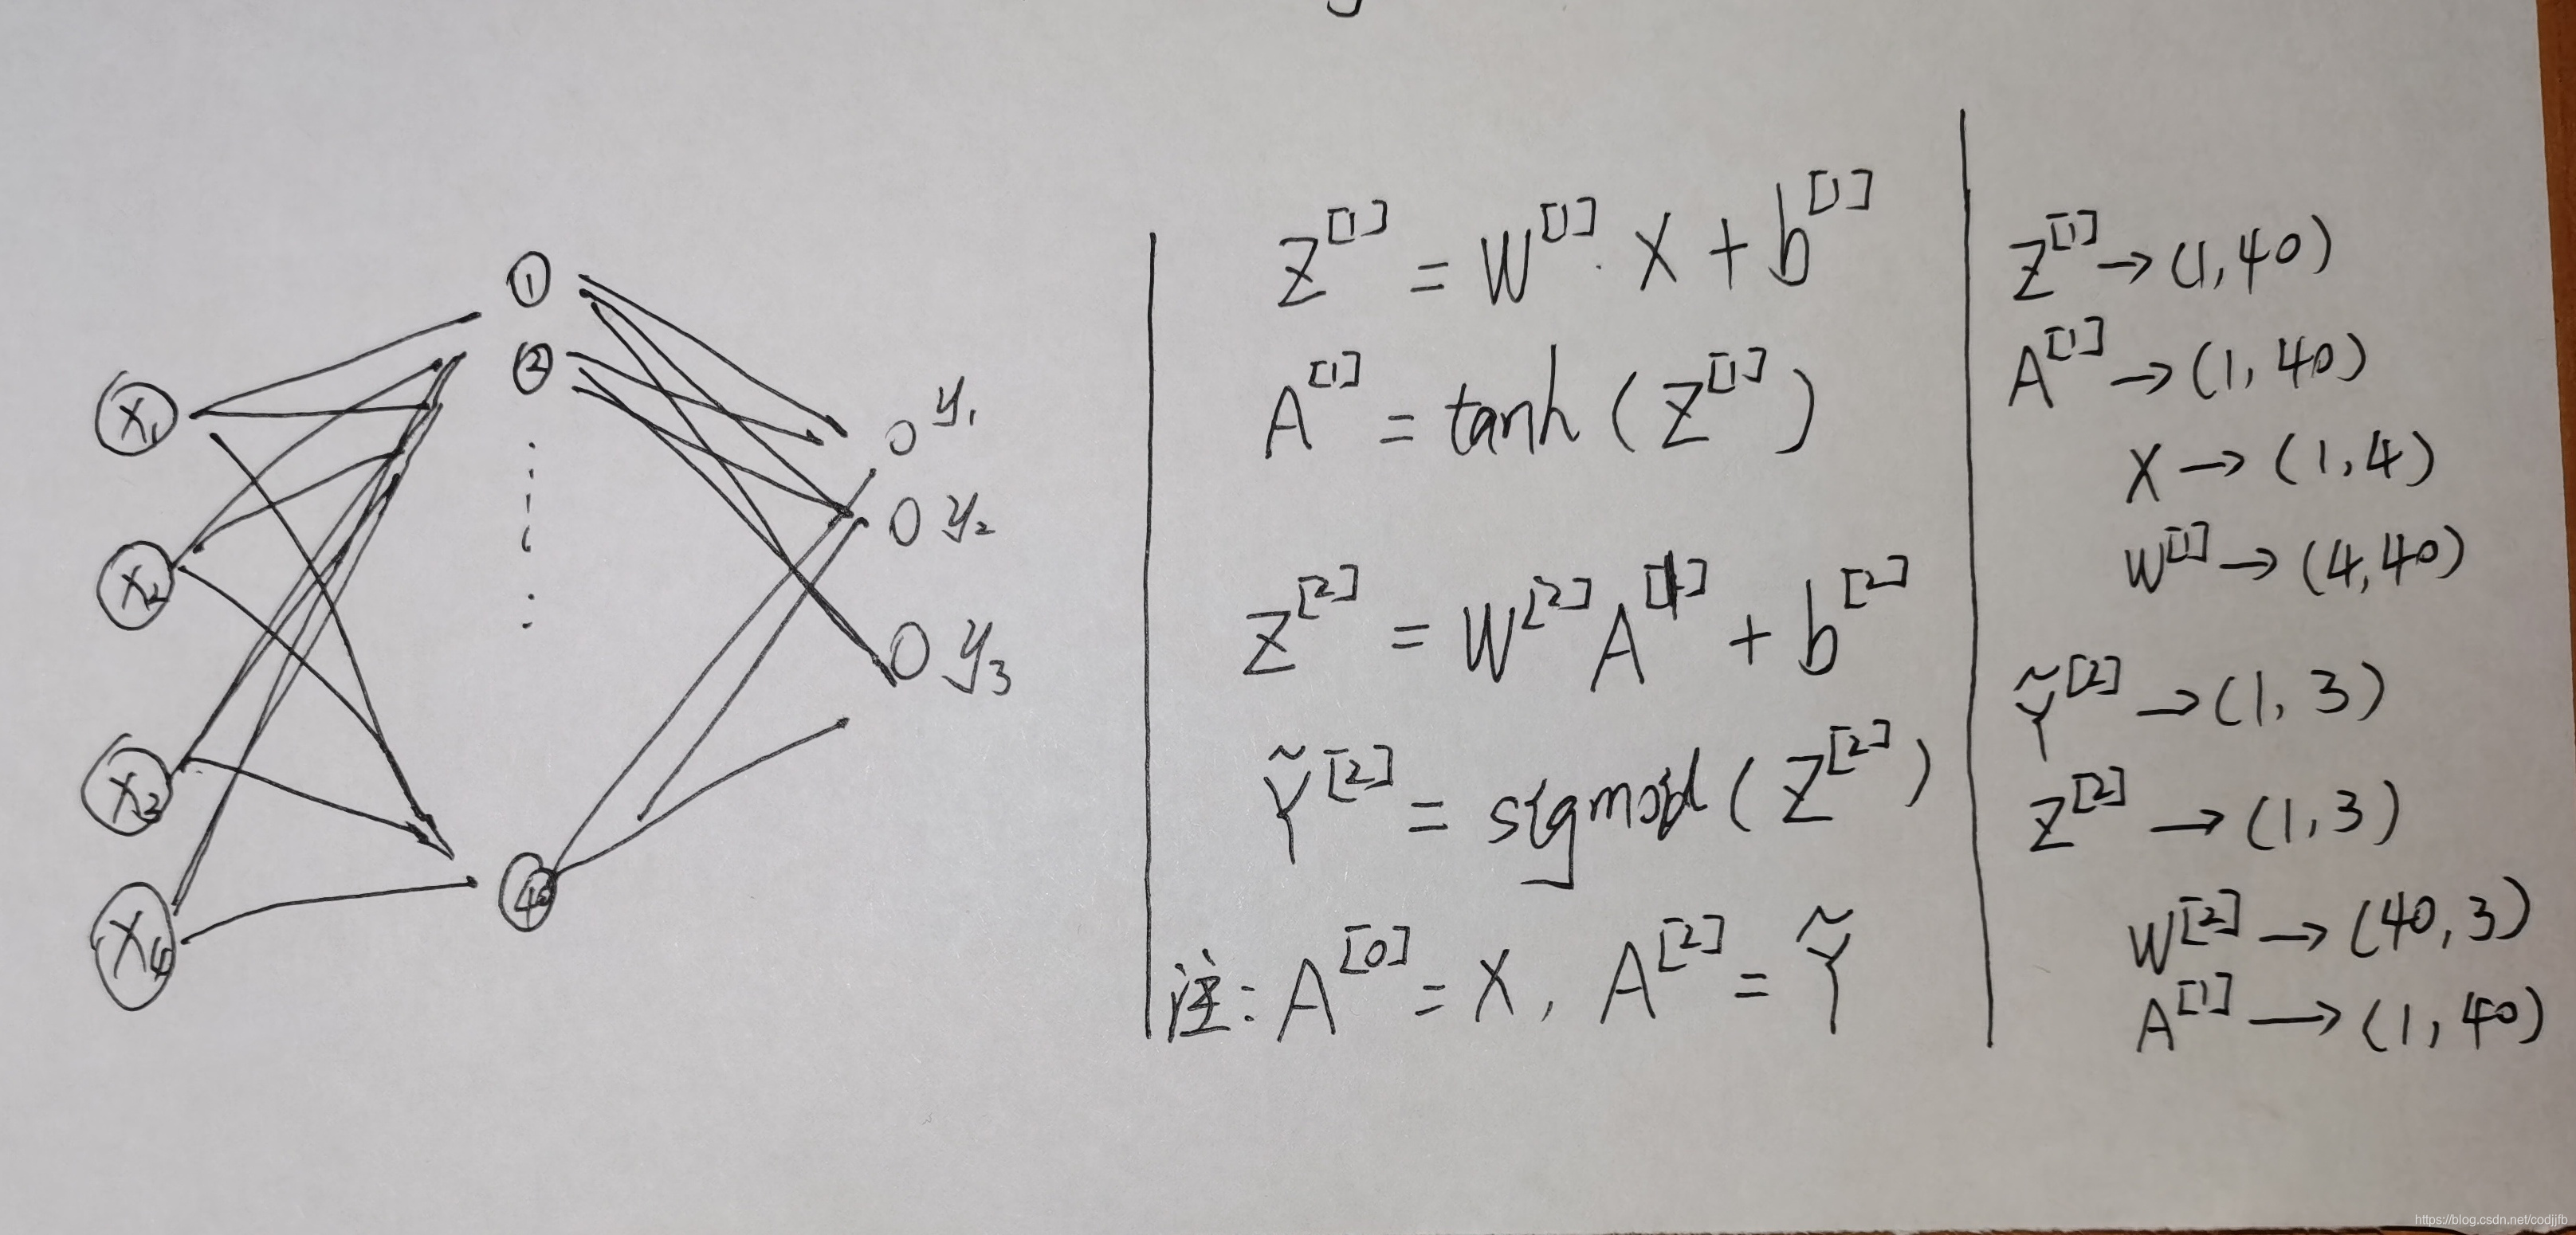 X₁
X₂
X₃
X₄
①
②
40
y₁
y₂
y₃
Z^[1] = W^[1] · X + b^[1]
A^[1] = tanh (Z^[1])
Z^[2] = W^[2] A^[1] + b^[2]
Ỹ^[2] = sigmoid (Z^[2])
注: A^[0] = X, A^[2] = Ỹ
Z^[1] → (1,40)
A^[1] → (1,40)
X → (1,4)
W^[1] → (4,40)
Ỹ^[2] → (1,3)
Z^[2] → (1,3)
W^[2] → (40,3)
A^[1] → (1,40)
https://blog.csdn.net/codjjfb